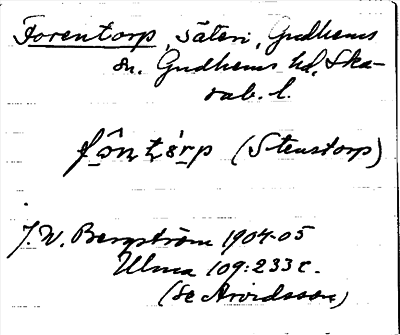 Forentorp, säteri, Gudhems
sn. Gudhems hd, Ska-
rab. l.
(Stenstorp)
J. W. Bergström 1904-05
Ulma 109:233 c.
(Se Arvidsson)